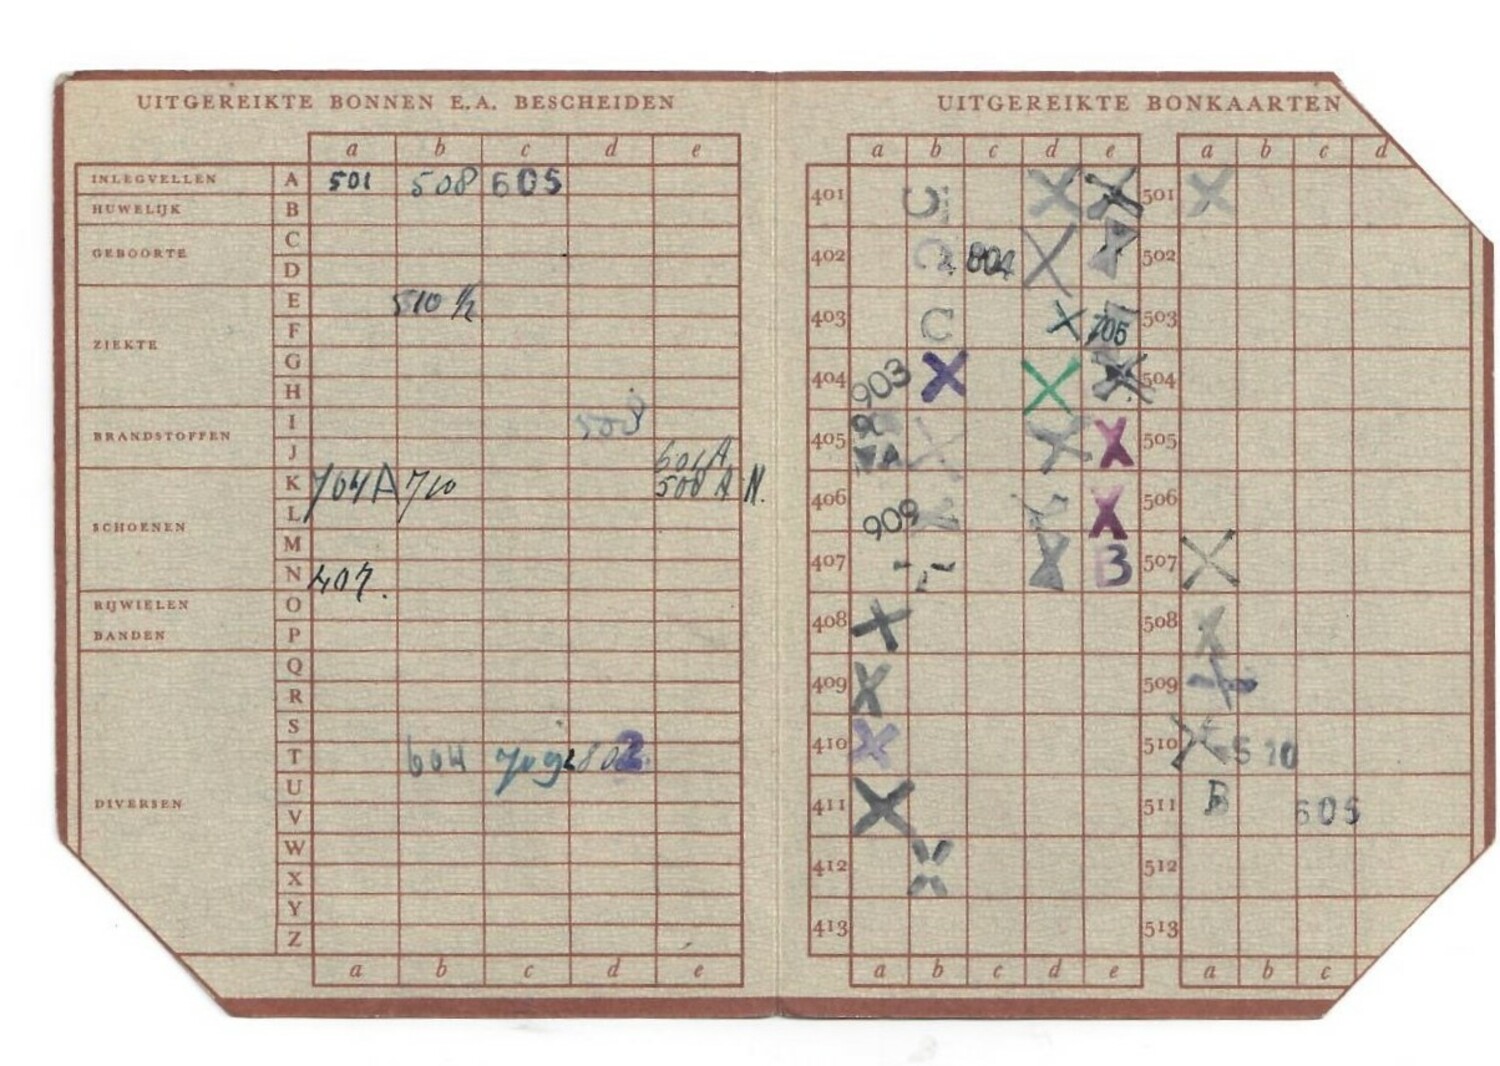 UITGEREIKTE BONNEN E.A. BESCHEIDEN
a b c d e
INLEGVELLEN A 501 508 605
HUWELIJK B
GEBOORTE C
D
ZIEKTE E 510 ½
F
G
H
BRANDSTOFFEN I 508
J 601 A
SCHOENEN K 704A 710 508 A N.
L
M
N 407.
RIJWIELEN O
BANDEN P
DIVERSEN Q
R
S
T 604 709 802
U
V
W
X
Y
Z
a b c d e
UITGEREIKTE BONKAARTEN
a b c d e a b c d
401 X X 501 X
402 804 X X 502
403 C X 705 503
404 903 X X X 504
405 X X X 505
406 909 X 506
407 X B 507 X
408 X 508 X
409 X 509 X
410 X 510 X 510
411 X 511 B 605
412 X 512
413 513
a b c d e a b c